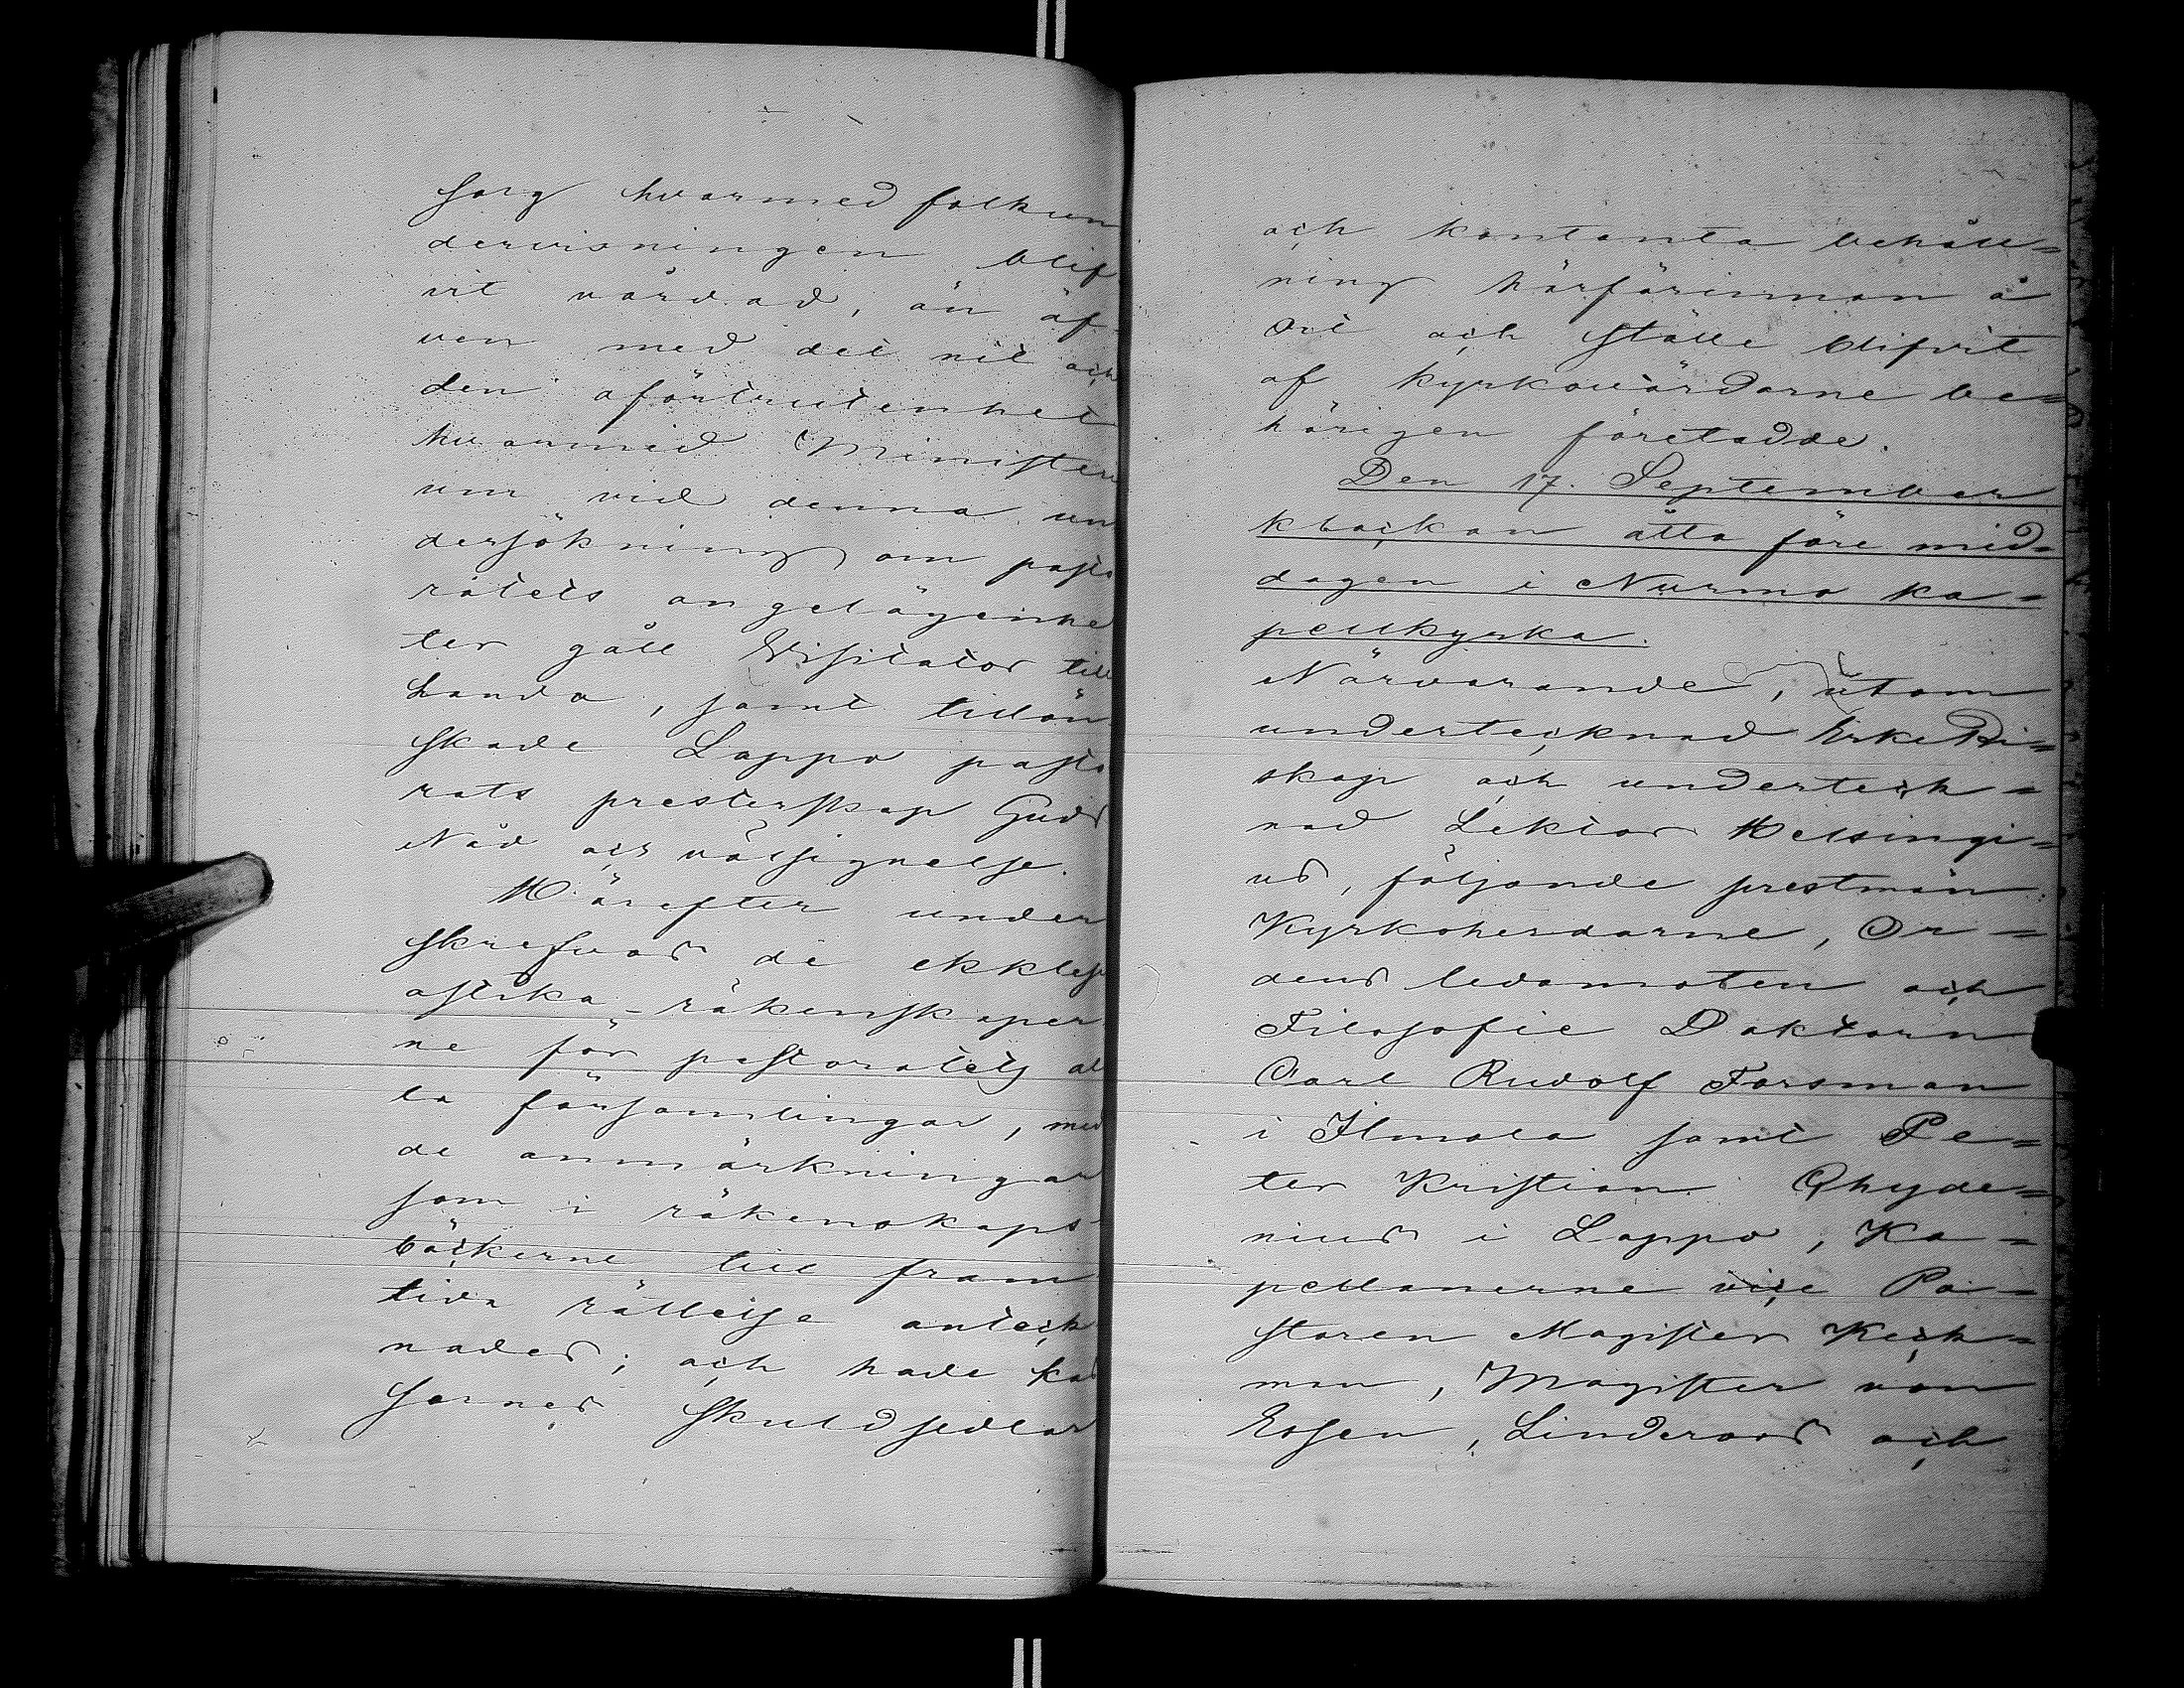 sorg hvarmed folkun
dervisningen blif
vit vårdad, än äf-
ven med det nit och
den oförtrutenhet
hvarmed Ministeri
um vid denna un
dersökning om pasto
ratets angelägenhe
ter gått Visitator till
handa, samt tillön
skade Lappo pasto
rats presterskap Guds
Nåd och välsignelse.
Härefter under
skrefvos de ekklesi
astika räkenskaper
ne för pastoratets al
la församlingar, med
de anmärkningar
som i räkenskaps-
böckerne till fram
tida rättelse anteck
nades; och hade kas
sornes skuldsedlar
och kontanta behåll=
ning härförinnan å
ort och ställe blifvit
af kyrkovärdarne be=
hörigen företedde.
Den 17. September
klockan åtta före mid=
dagen i Nurmo ka=
pellkyrka.
Närvarande, utom
undertecknad ErkeBi=
skop och underteck=
nad Lektor Helsingi=
us, följande prestmän
Kyrkoherdarne, Or=
dens ledamoten och
Filosofie Doktorn
Carl Rudolf Forsman
i Ilmola samt Pe=
ter Kristian Chyde=
nius i Lappo, Ka=
pellanerne vice Pa=
storen Magister Keck=
man, Magister von
Essen, Linderoos och